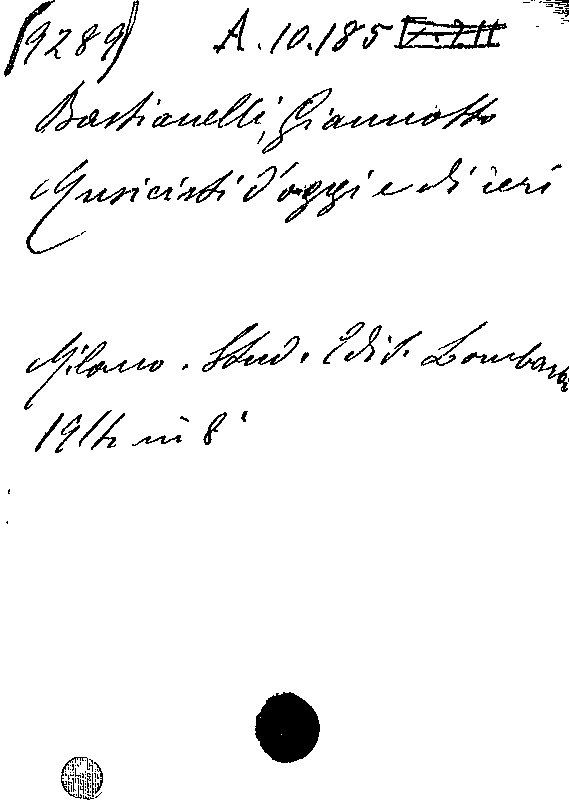 (9289) A.10.185
Bastianelli, Giannotto
Musicisti d'oggi e di ieri
Milano. Stud. Edit. Lombardo
1914 in 8°